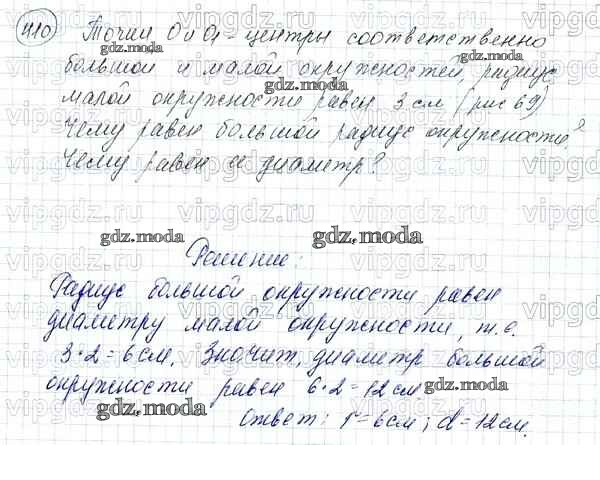 410 Точки O и O₁ - центры соответственно
большой и малой окружностей, радиус
малой окружности равен 3 см (рис 69)
Чему равен большой радиус окружности?
Чему равен ее диаметр?
Решение:
Радиус большой окружности равен
диаметру малой окружности, т.е.
3·2=6 см, Значит, диаметр большой
окружности равен 6·2=12 см
ответ: r=6см; d=12см.
gdz.moda
vipgdz.ru